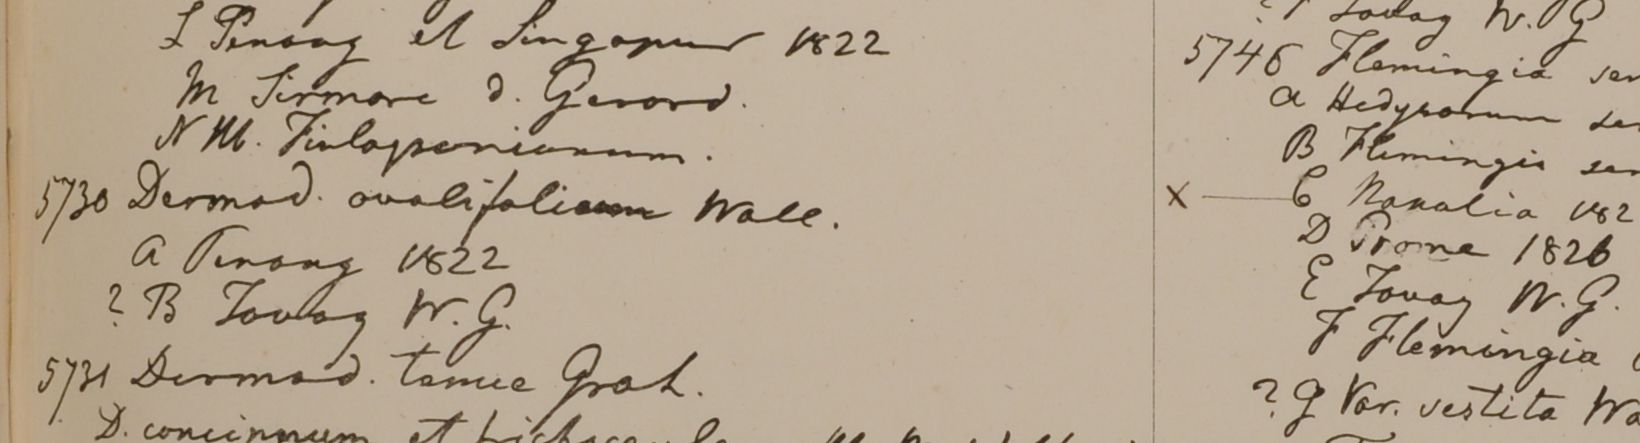 L Penang et Singapur 1822
M Sirmore d. Gerard.
N Hb. Finlaysonianum.
5730 Desmod. ovalifolium Wall.
A Penang 1822
? B Tavoy W.G.
5731 Desmod. tenue Grah.
D. concinnum et
Tavoy W.G
5746 Flemingia
A Hedysarum
B Flemingia
X — C 182
D Prome 1826
E Tavoy W.G.
F Flemingia
? G Var. vestita Wa